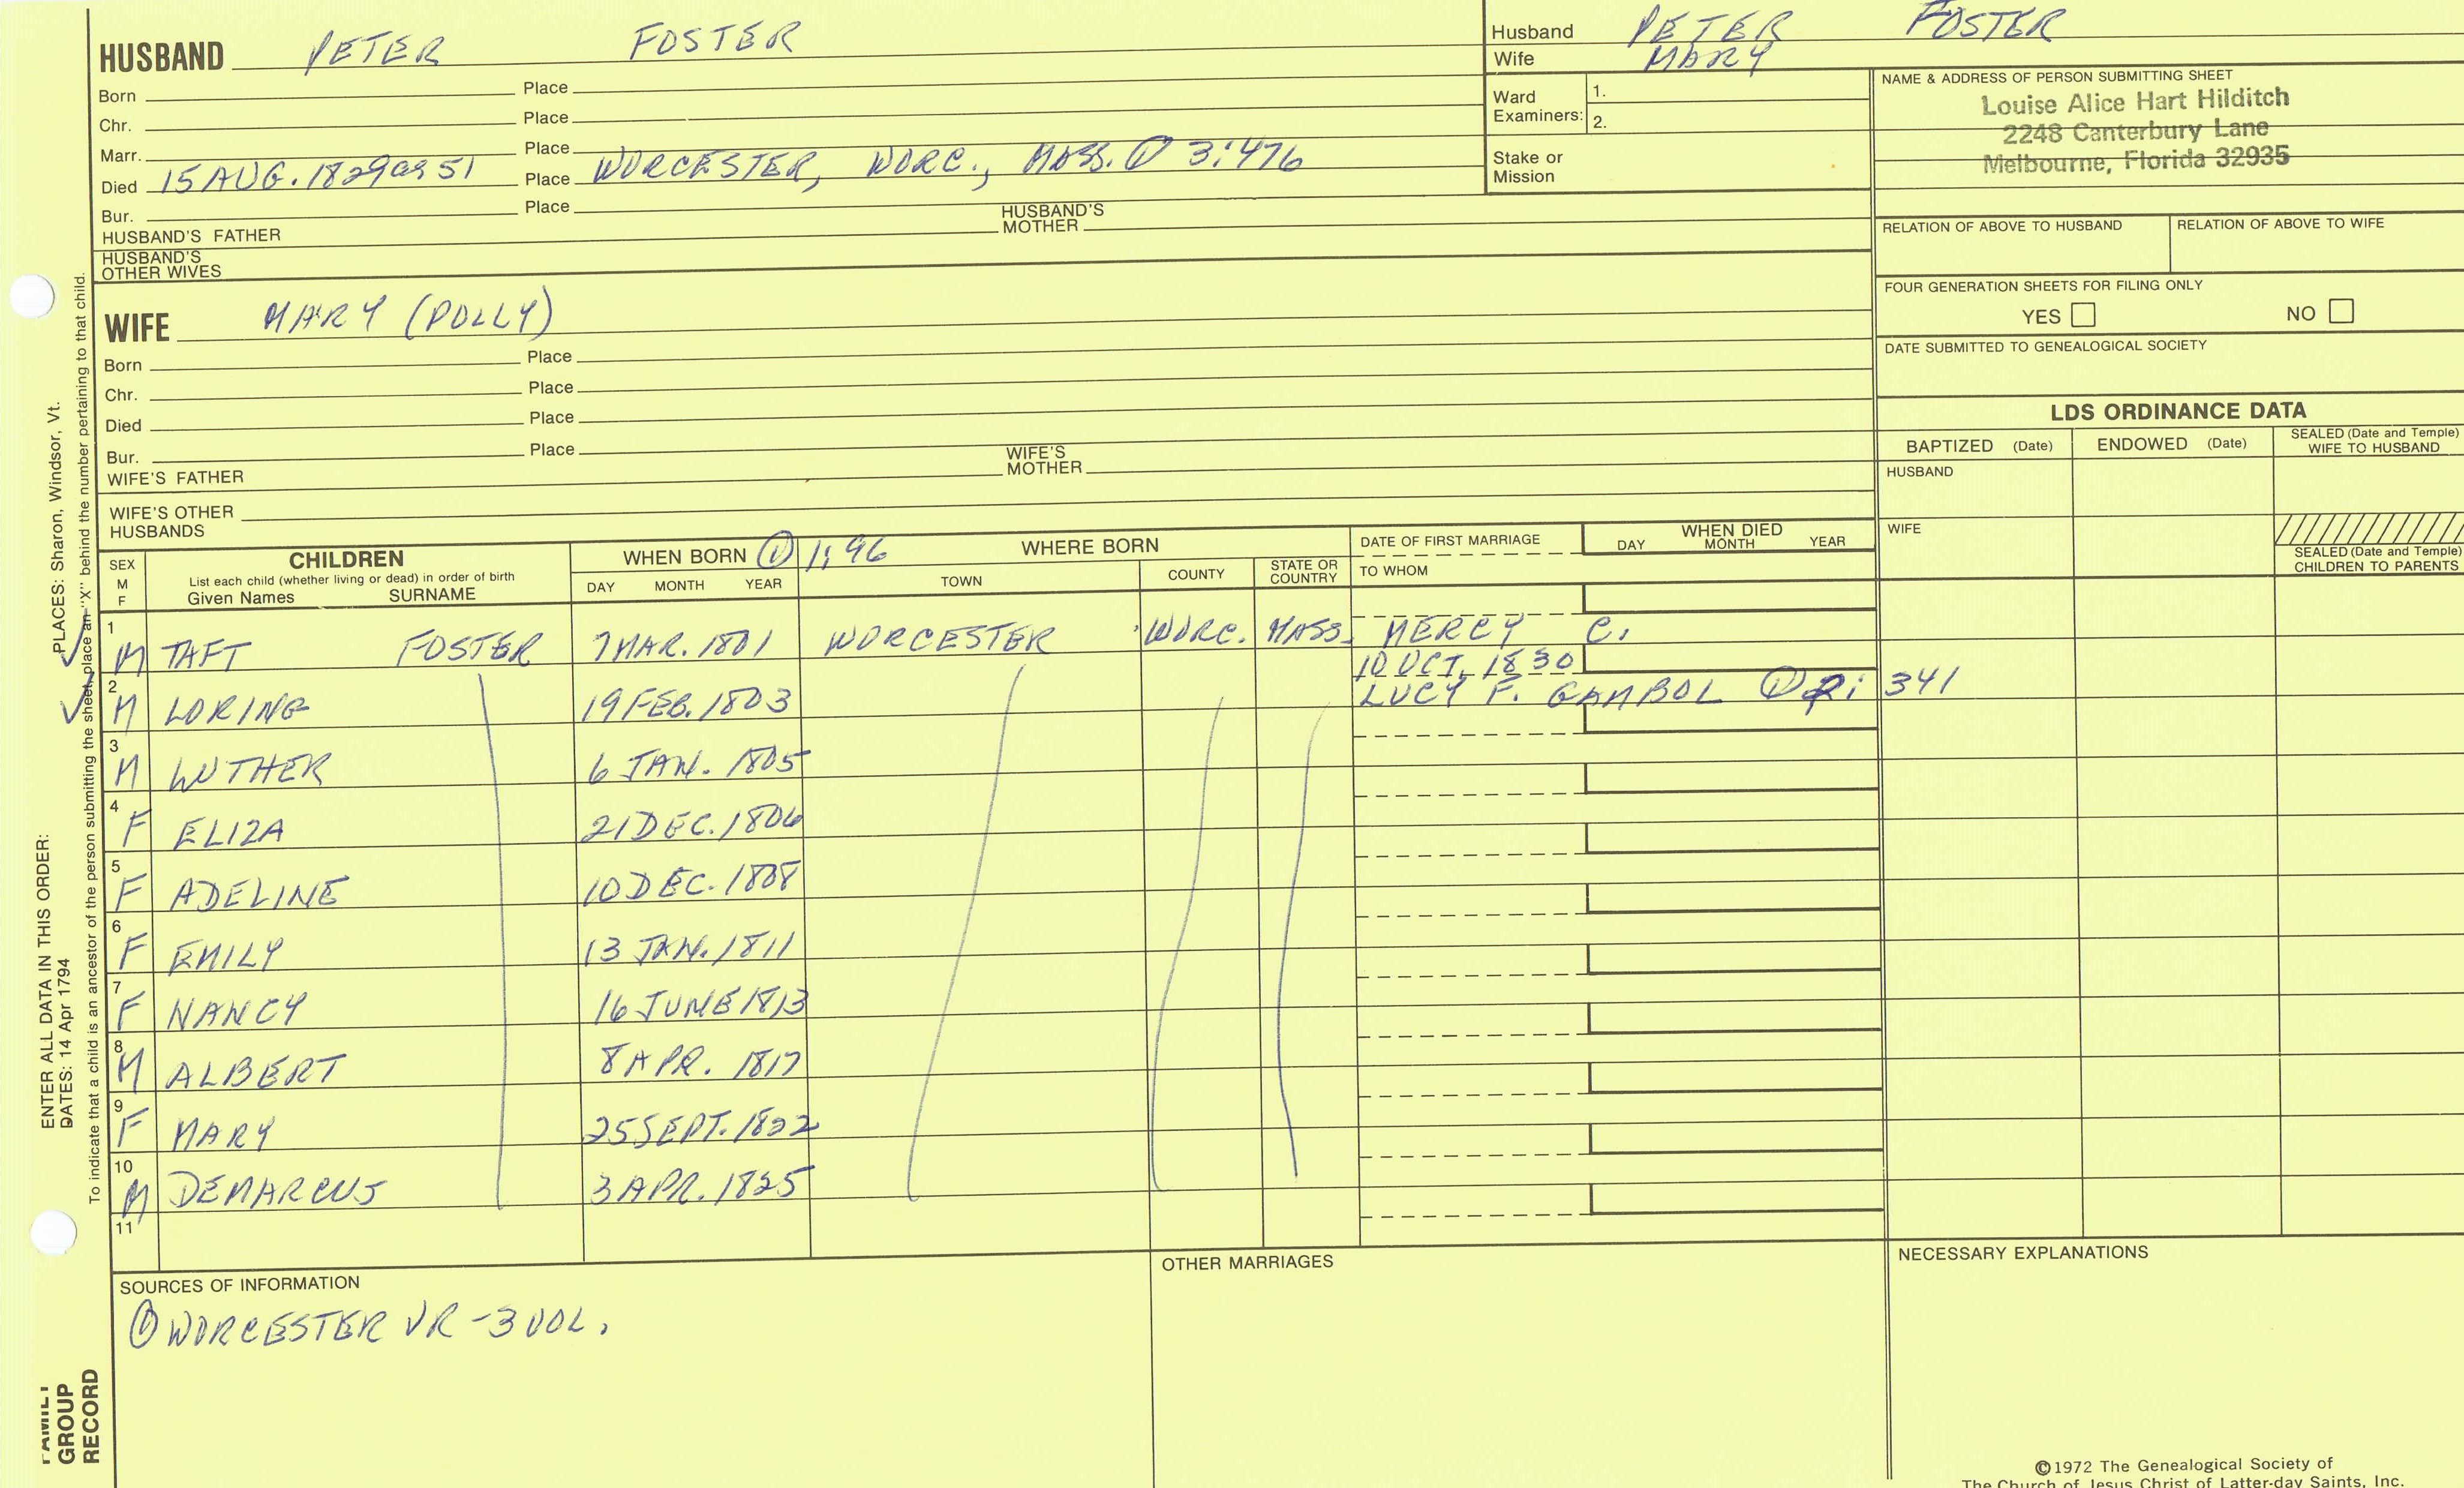 HUSBAND PETER FOSTER
Born Place
Chr. Place
Marr. Place
Died 15 AUG. 1829 ae 51 Place WORCESTER, WORC., MASS. ① 3:476
Bur. Place
HUSBAND'S FATHER HUSBAND'S MOTHER
HUSBAND'S OTHER WIVES
WIFE MARY (POLLY)
Born Place
Chr. Place
Died Place
Bur. Place
WIFE'S FATHER WIFE'S MOTHER
WIFE'S OTHER HUSBANDS
Husband PETER FOSTER
Wife MARY
Ward Examiners: 1.
2.
Stake or Mission
NAME & ADDRESS OF PERSON SUBMITTING SHEET
Louise Alice Hart Hilditch
2248 Canterbury Lane
Melbourne, Florida 32935
RELATION OF ABOVE TO HUSBAND RELATION OF ABOVE TO WIFE
FOUR GENERATION SHEETS FOR FILING ONLY
YES NO
DATE SUBMITTED TO GENEALOGICAL SOCIETY
LDS ORDINANCE DATA
BAPTIZED (Date) ENDOWED (Date) SEALED (Date and Temple) WIFE TO HUSBAND
HUSBAND
WIFE
SEALED (Date and Temple) CHILDREN TO PARENTS
SEX M F CHILDREN WHEN BORN ① 1:96 WHERE BORN DATE OF FIRST MARRIAGE WHEN DIED
List each child (whether living or dead) in order of birth
Given Names SURNAME DAY MONTH YEAR TOWN COUNTY STATE OR COUNTRY TO WHOM DAY MONTH YEAR
1 M TAFT FOSTER 7 MAR. 1801 WORCESTER WORC. MASS. MERCY C.
10 OCT. 1830
2 M LORING 19 FEB. 1803 LUCY F. GAMBOL ① 2: 341
3 M LUTHER 6 JAN. 1805
4 F ELIZA 21 DEC. 1806
5 F ADELINE 10 DEC. 1808
6 F EMILY 13 JAN. 1811
7 F NANCY 16 JUNE 1813
8 M ALBERT 8 APR. 1817
9 F MARY 25 SEPT. 1822
10 M DEMARCUS 3 APR. 1825
11
SOURCES OF INFORMATION
① WORCESTER VR - 3 VOL.
OTHER MARRIAGES
NECESSARY EXPLANATIONS
©1972 The Genealogical Society of
The Church of Jesus Christ of Latter-day Saints, Inc.
FAMILY
GROUP
RECORD
ENTER ALL DATA IN THIS ORDER:
DATES: 14 Apr 1794
PLACES: Sharon, Windsor, Vt.
To indicate that a child is an ancestor of the person submitting the sheet, place an "X" behind the number pertaining to that child.